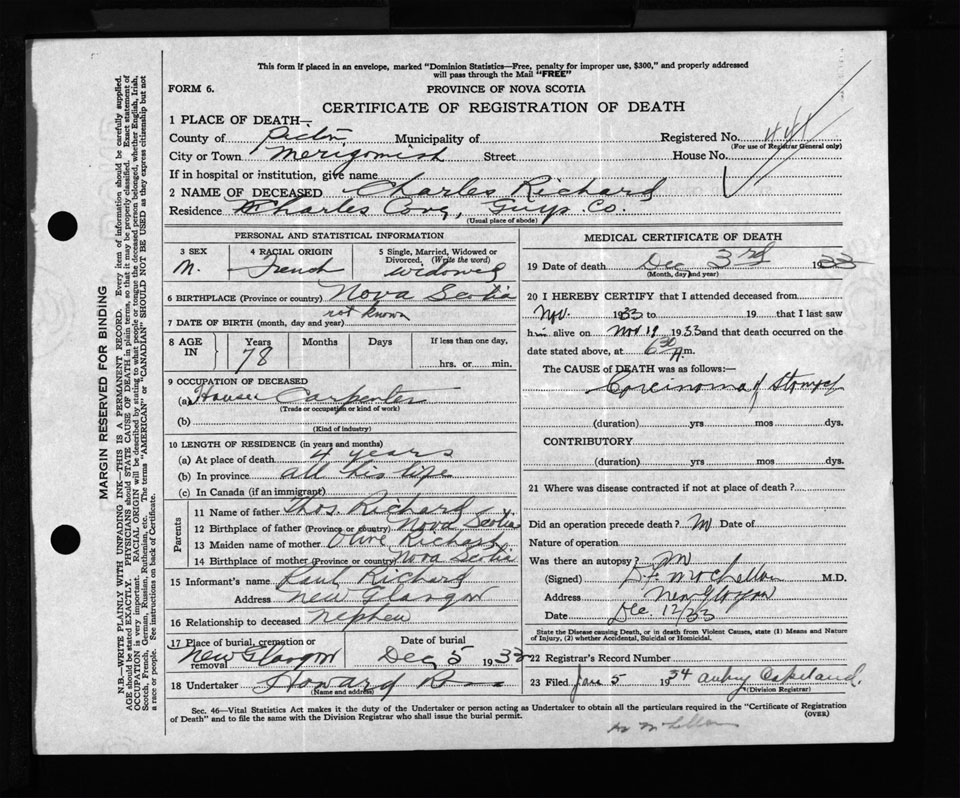 This form if placed in an envelope, marked "Dominion Statistics—Free, penalty for improper use, $300," and properly addressed
will pass through the Mail "FREE"
FORM 6.
PROVINCE OF NOVA SCOTIA
CERTIFICATE OF REGISTRATION OF DEATH
1 PLACE OF DEATH—
County of Pictou Municipality of Registered No.
(For use of Registrar General only)
City or Town Merigomish Street House No.
If in hospital or institution, give name
2 NAME OF DECEASED Charles Richard
Residence Charles Cove, Guys. Co.
(Usual place of abode)
PERSONAL AND STATISTICAL INFORMATION
3 SEX 4 RACIAL ORIGIN 5 Single, Married, Widowed or
Divorced, (Write the word)
M. French widowed
6 BIRTHPLACE (Province or country) Nova Scotia
7 DATE OF BIRTH (month, day and year) not known
8 AGE IN Years Months Days If less than one day,
78 hrs. or min.
9 OCCUPATION OF DECEASED
(a) House Carpenter
(Trade or occupation or kind of work)
(b)
(Kind of industry)
10 LENGTH OF RESIDENCE (in years and months)
(a) At place of death 4 years
(b) In province all his life
(c) In Canada (if an immigrant)
Parents
11 Name of father Thos. Richard
12 Birthplace of father (Province or country) Nova Scotia
13 Maiden name of mother Olive Richard
14 Birthplace of mother (Province or country) Nova Scotia
15 Informant's name Paul Richard
Address New Glasgow
16 Relationship to deceased Nephew
17 Place of burial, cremation or Date of burial
removal New Glasgow Dec 5 1933
18 Undertaker Howard
(Name and address)
MEDICAL CERTIFICATE OF DEATH
19 Date of death Dec 3rd 1933
(Month, day and year)
20 I HEREBY CERTIFY that I attended deceased from
Nov. 1933 to 19 that I last saw
him alive on Nov 19 1933 and that death occurred on
date stated above, at 6 30 A.m.
The CAUSE of DEATH was as follows:—
Corcinoma of
(duration) yrs mos dys.
CONTRIBUTORY
(duration) yrs mos dys.
21 Where was disease contracted if not at place of death?
Did an operation precede death? Date of
Nature of operation
Was there an autopsy?
(Signed) M.D.
Address New Glasgow
Date Dec. 12/33
State the Disease causing Death, or in death from Violent Causes, state (1) Means and Nature
of Injury, (2) whether Accidental, Suicidal or Homicidal.
22 Registrar's Record Number
23 Filed Jan 5 1934 Aubry Copeland.
(Division Registrar)
Sec. 46—Vital Statistics Act makes it the duty of the Undertaker or person acting as Undertaker to obtain all the particulars required in the "Certificate of Registration
of Death" and to file the same with the Division Registrar who shall issue the burial permit.
(OVER)
MARGIN RESERVED FOR BINDING
N.B.—WRITE PLAINLY WITH UNFADING INK—THIS IS A PERMANENT RECORD. Every item of information should be carefully supplied.
AGE should be stated EXACTLY. PHYSICIANS should STATE CAUSE OF DEATH in plain terms, so that it may be properly classified. Exact statement of
OCCUPATION is very important. RACIAL ORIGIN will be described by stating to what people or tongue the deceased person belonged, whether English, Irish,
Scotch, French, German, Russian, Ruthenian, etc. The terms "AMERICAN" or "CANADIAN" SHOULD NOT BE USED as they express citizenship but not
a race or people. See instructions on back of Certificate.